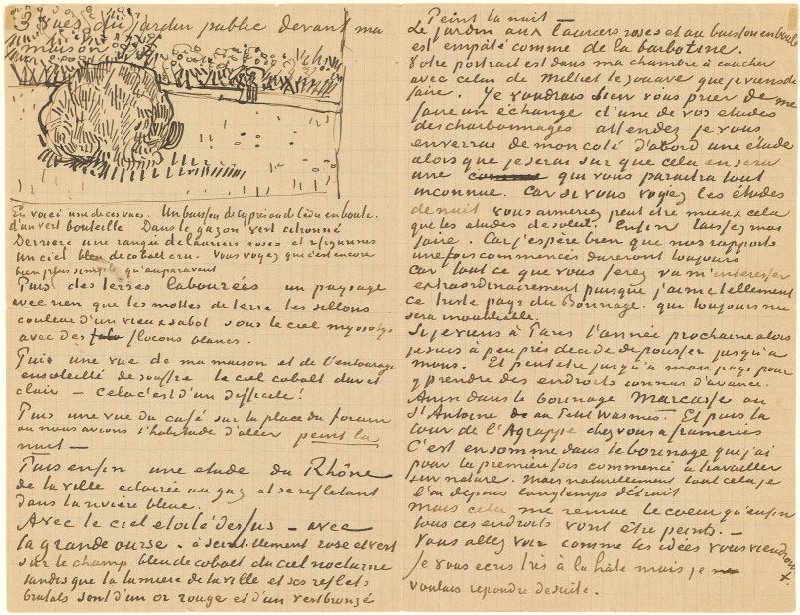 3 vues du jardin public devant ma
maison
En voici une de ces vues. Un buisson de cyprès ou de cèdre en boule
d'un vert bouteille Dans le gazon vert citronné
Derrière une rangée de lauriers roses et 2 figurines
Un ciel bleu de cobalt cru. Vous voyez que c'est encore
bien plus simple qu'auparavant
Puis des terres labourées un paysage
avec rien que les mottes de terre les sillons
couleur d'un vieux sabot sous le ciel myosotys
avec des flocons blancs.
Puis une vue de ma maison et de l'entourage
ensoleillé de souffre le ciel cobalt dur et
clair – cela c'est d'un difficile!
Puis une vue du café sur la place du forum
où nous avions l'habitude d'aller peint la
nuit –
Puis enfin une etude du Rhône
de la ville eclairée au gaz et se refletant
dans la rivière bleue.
Avec le ciel etoilé dessus – avec
la grande ourse – à scintillement rose et vert
sur le champ bleu de cobalt du ciel nocturne
tandis que la lumière de la ville et ses reflets
brutals sont d'un or rouge et d'un vert bronzé
Peint la nuit –
Le jardin aux lauriers roses et au buisson en boule
est empâté comme de la barbotine.
Votre portrait est dans ma chambre à coucher
avec celui de Milliet le zouave que je viens de
faire. Je voudrais bien vous prier de me
faire un échange d'une de vos etudes
des charbonnages attendez je vous
enverrai de mon coté d'abord une étude
alors que je serai sur que cela en sera
une qui vous paraitra tout
inconnue. Car si vous voyiez les études
de nuit vous aimeriez peut etre mieux cela
que les etudes de soleil. Enfin laissez moi
faire. Car j'espère bien que nos rapports
une fois commencés dureront toujours
Car tout ce que vous ferez va m'interesser
extraordinairement puisque j'aime tellement
ce triste pays du Borinage. qui toujours me
sera inoubliable.
Si je viens à Paris l'année prochaine alors
je suis à peu près decidé de pousser jusqu'à
Mons. Et peut etre jusqu'à mon pays pour
y prendre des endroits connus d'avance.
Ainsi dans le borinage Marcasse ou
St Antoine ou au Petit Wasmes. Et puis la
cour de l'Agrappe chez vous à frameries
C'est en somme dans le borinage que j'ai
pour la premiere fois commencé à travailler
sur nature. Mais naturellement tout cela je
l'ai depuis longtemps détruit
Mais cela me remue le coeur qu'enfin
tous ces endroits vont être peints. –
Vous allez voir comme les idées vous viendront
Je vous ecris très à la hâte mais je
voulais repondre de suite.